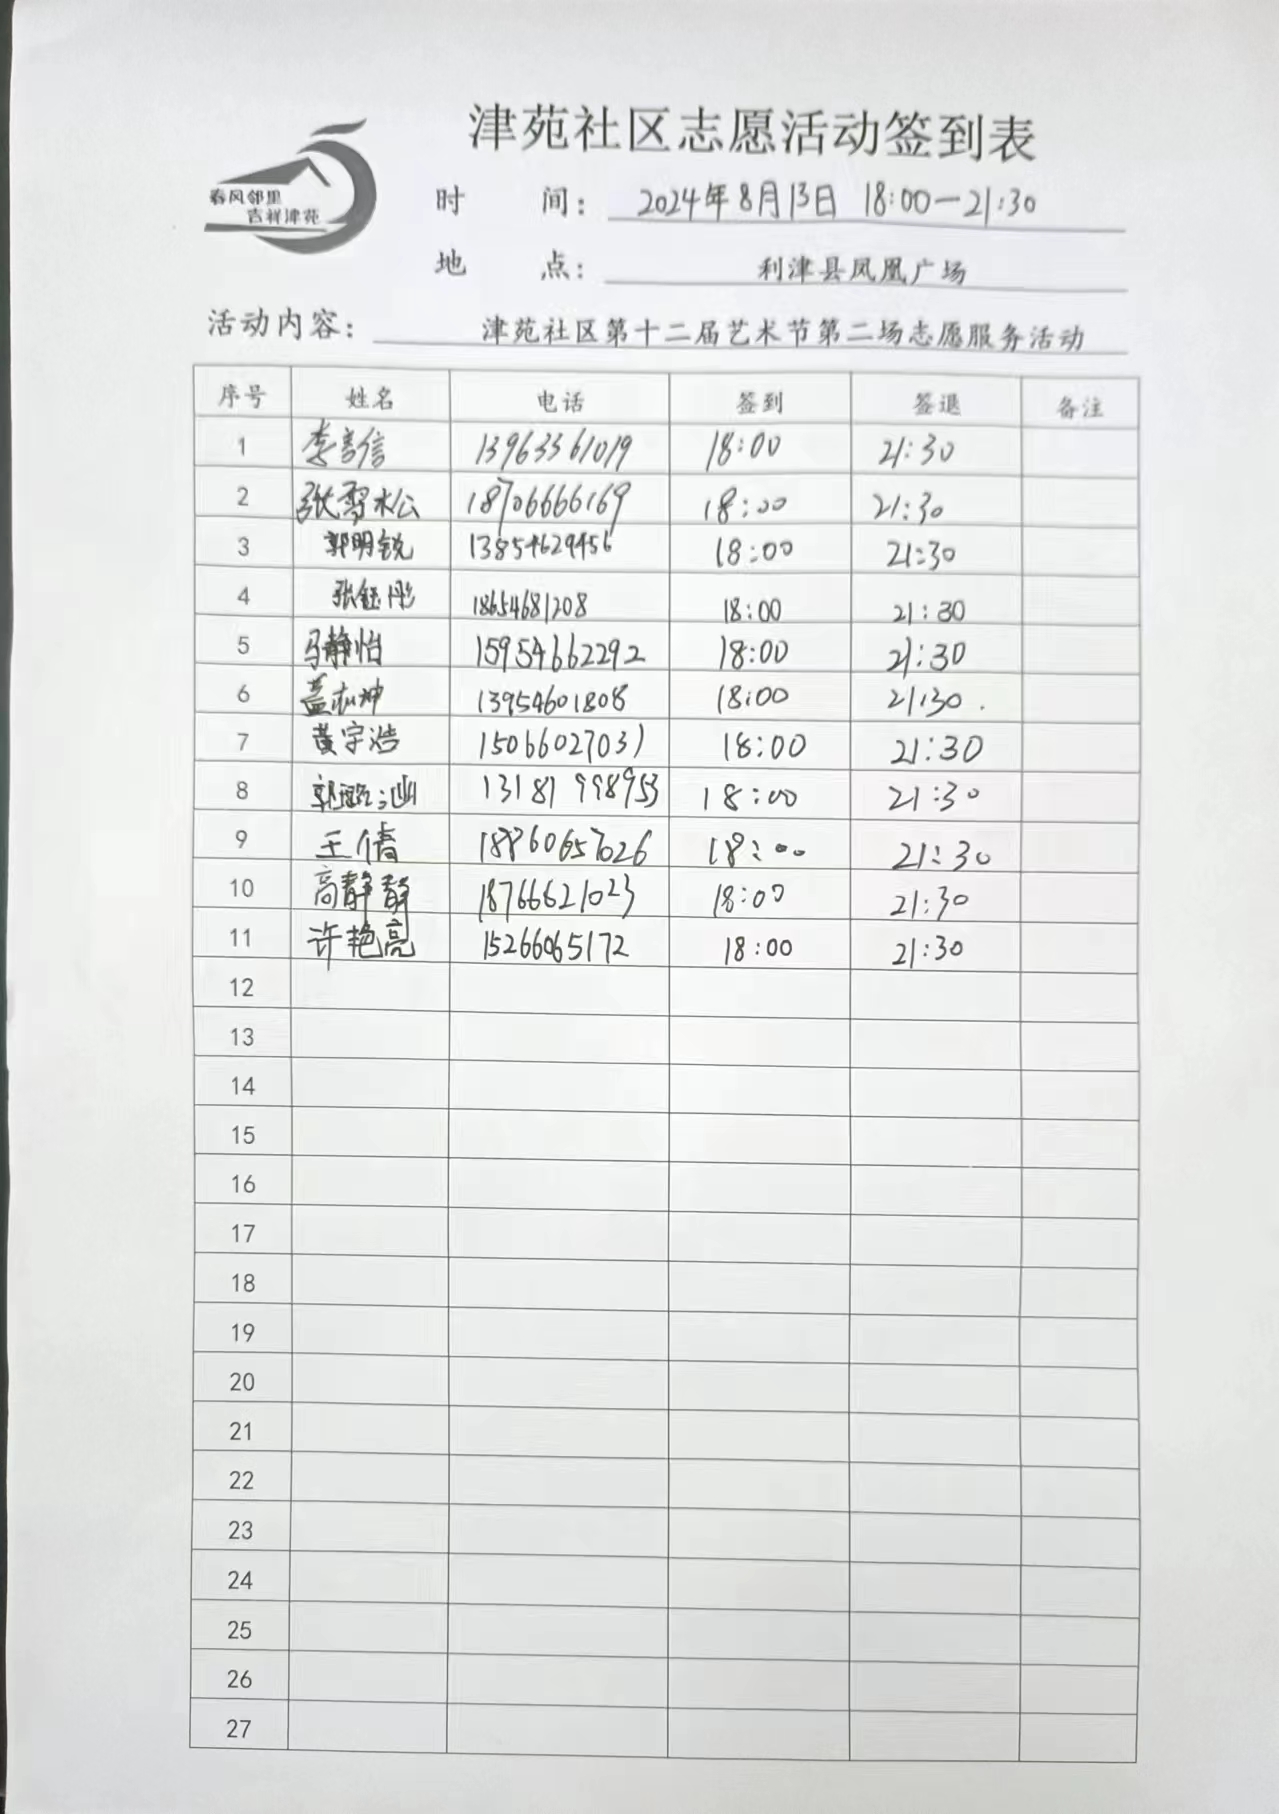 津苑社区志愿活动签到表
春风邻里
吉祥津苑
时 间： 2024年8月13日 18:00—21:30
地 点： 利津县凤凰广场
活动内容： 津苑社区第十二届艺术节第二场志愿服务活动
序号 姓名 电话 签到 签退 备注
1 李言信 13963361019 18:00 21:30
2 张雪松 18706666169 18:00 21:30
3 郭明锐 13854629456 18:00 21:30
4 张钰彤 18654681208 18:00 21:30
5 马静怡 15954662292 18:00 21:30
6 盖志坤 13954601808 18:00 21:30
7 黄宇浩 15066027031 18:00 21:30
8 郭 13181998953 18:00 21:30
9 王倩 18860657026 18:00 21:30
10 高静静 18766621023 18:00 21:30
11 许艳亮 15266065172 18:00 21:30
12
13
14
15
16
17
18
19
20
21
22
23
24
25
26
27